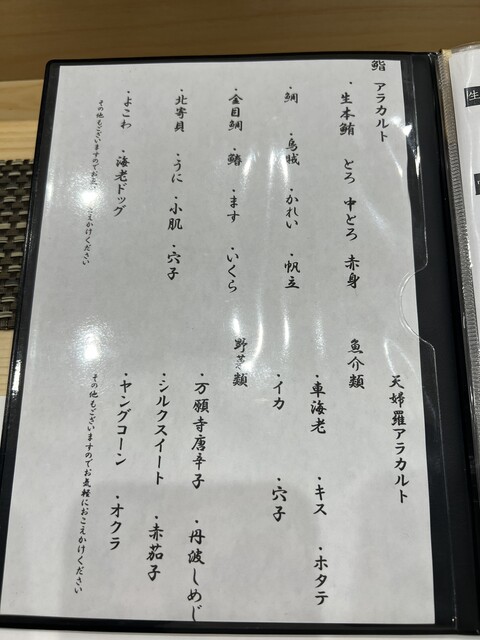 鮨 アラカルト
・生本鮪 とろ 中とろ 赤身
・鯛 ・烏賊 ・かれい ・帆立
・金目鯛 ・鰆 ・ます ・いくら
・北寄貝 ・うに ・小肌 ・穴子
・よこわ ・海老ドッグ
その他もございますのでお気軽におこえかけください
天婦羅アラカルト
魚介類
・車海老 ・キス ・ホタテ
・イカ ・穴子
野菜類
・万願寺唐辛子 ・丹波しめじ
・シルクスイート ・赤茄子
・ヤングコーン ・オクラ
その他もございますのでお気軽におこえかけください
生